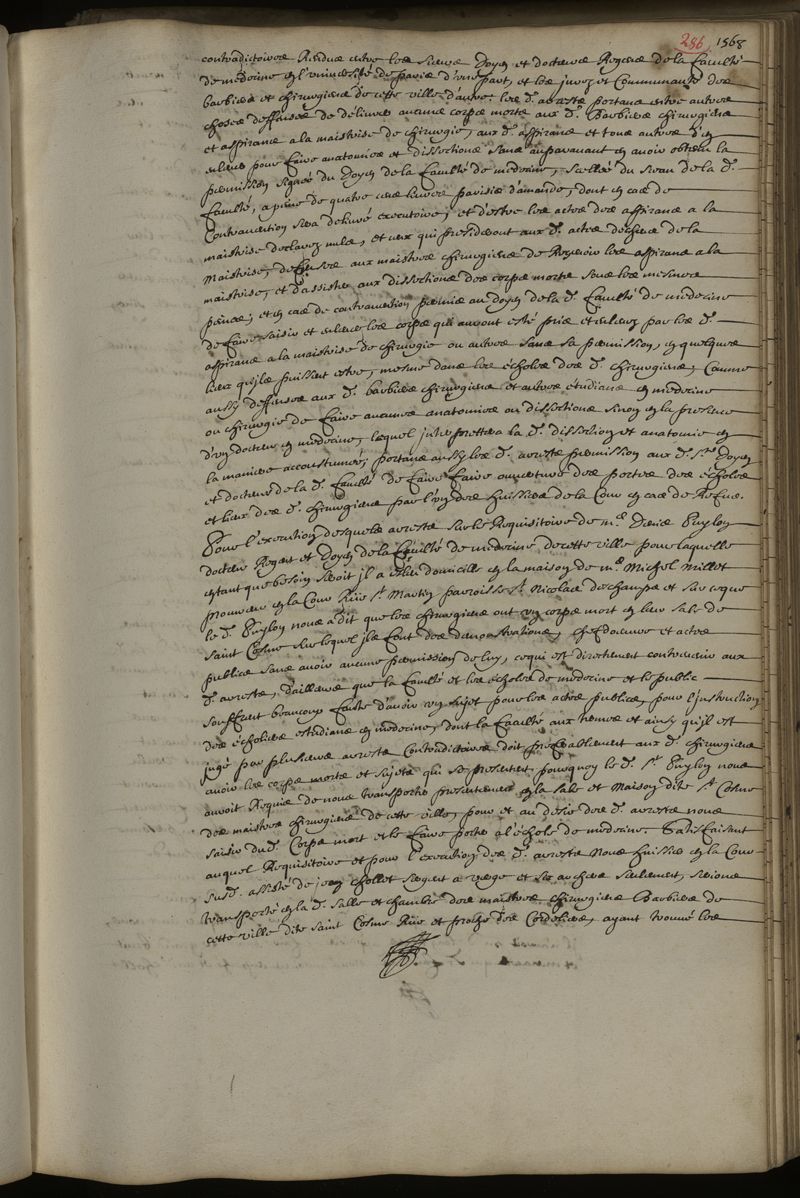 286 1568
contradictoires Rendus entre les sieurs Doyen et docteurs Regens de la faculté
de medecine en l'université de paris d'une part, et les jurez et Communauté des
barbiers et chirurgiens de cette ville d'autre, les d. arrests portans entre autres
choses deffenses de delivrer aucuns corps morts aux d. Barbiers chirurgiens
et aspirans a la maistrise de chirurgie, aux d. aspirans et tous autres d'en
enlever pour faire anatomies et dissections sans auparavant en avoir obtenu la
permission signée du Doyen de la faculté de medecine, scellée du sceau de la d.
faculté, a peine de quatre cens livres parisis d'amande, dont en cas de
Contravention sera delivré executoire, et d'estre les actes des aspirans a la
maistrise declarez nuls, et ceux qui presideront aux d. actes decheus de la
Maistrise, deffenses aux maistres chirurgiens de Recevoir les aspirans a la
maistrise, et d'assister aux dissections des corps morts sous les mesmes
peines, et en cas de contravention permis au doyen de la d. faculté de medecine
de faire saisir et enlever les corps qui auront esté pris et enlevez par les d.
aspirans a la maistrise de chirurgie ou autres sans sa permission, en quelques
lieux qu'ils puissent estre, mesme dans les écholes des d. chirurgiens, Comme
aussy deffenses aux d. barbiers chirurgiens et autres etudians en medecine
ou chirurgie de faire aucunes anatomies ou dissections sinon en la presence
d'un docteur en medecine, lequel interprettera la d. dissection et anatomie en
la maniere accoustumée, portans aussy les d. arrests permission aux d. Srs Doyen
et docteurs de la d. faculté de faire faire ouverture des portes des écholes
et lieux des d. chirurgiens par l'un des huissiers de la Cour en cas de Refus.
Pour l'execution desquels arrests sur le Requisitoire de me. Denis Puylon
docteur Regent et Doyen de la faculté de medecine de cette ville pour laquelle
entant que besoin seroit il a esleu domicille en la maison de me. Michel Millet
procureur en la Cour Rüe St. Martin parroisse St. Nicolas des champs et sur ce que
le d. Puylon nous a dit que les chirurgiens ont un corps mort en leur sale de
saint Cosme sur lequel ils font des demonstrations, chefdœuvre et actes
publics sans avoir aucune permission de luy, ce qui est directement contrevenir aux
d. arrests, d'ailleurs que la faculté et les écholes de medecine et le public
souffrent beaucoup faute d'avoir un sujet pour les actes publics, pour l'instruction
des écholiers estudians en medecine, dont la faculté aux termes et ainsy qu'il est
jugé par plusieurs arrests Contradictoires doit préférablement aux d. chirurgiens
avoir les corps morts et sujets qui se presentent, pourquoy le d. Sr. Puylon nous
auroit Requis de nous transporter presentement en la sale et Maison dite St. Cosme
des maistres chirurgiens de cette ville, pour et au desir des d. arrests nous
saisir du d. Corps mort et le faire porter a l'échole de medecine. Satisfaisant
auquel Requisitoire et pour l'execution des d. arrests Nous huissier en la Cour
susd. assisté de jean chollet sergent a verge et six archers seulement, serions
transporté en la d. salle et chambre des maistres chirurgiens Barbiers de
cette ville dite saint Cosme Rüe et proche des Cordeliers, ayant trouvé les